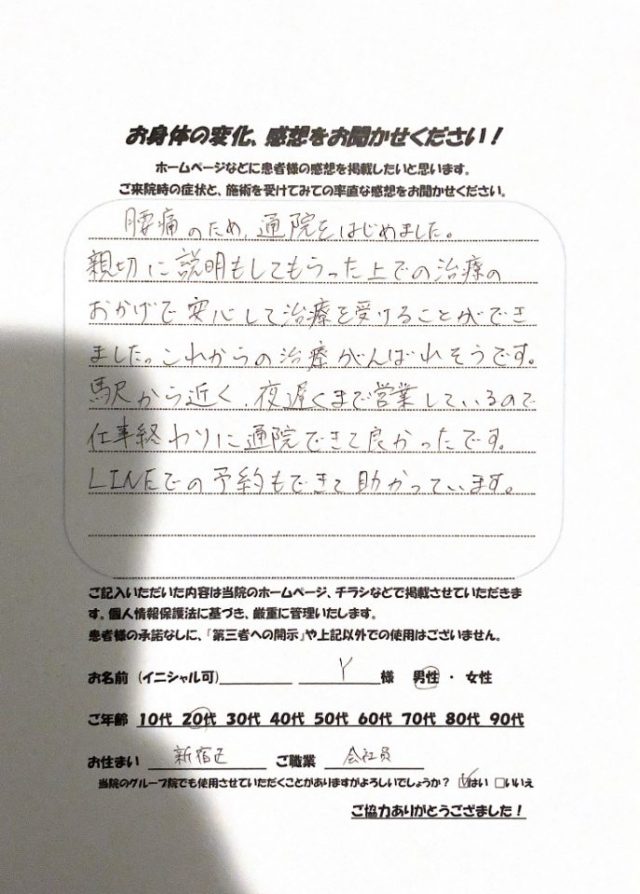 お身体の変化、感想をお聞かせください！
ホームページなどに患者様の感想を掲載したいと思います。
ご来院時の症状と、施術を受けてみての率直な感想をお聞かせください。
腰痛のため、通院をはじめました。
親切に説明もしてもらった上での治療の
おかげで安心して治療を受けることができ
ました。これからの治療がんばれそうです。
駅から近く、夜遅くまで営業しているので
仕事終わりに通院できて良かったです。
LINEでの予約もできて助かっています。
ご記入いただいた内容は当院のホームページ、チラシなどで掲載させていただきま
す。個人情報保護法に基づき、厳重に管理いたします。
患者様の承諾なしに、「第三者への開示」や上記以外での使用はございません。
お名前（イニシャル可） Y 様 男性 ・ 女性
ご年齢 10代 20代 30代 40代 50代 60代 70代 80代 90代
お住まい 新宿区 ご職業 会社員
当院のグループ院でも使用させていただくことがありますがよろしいでしょうか？ ☑はい □いいえ
ご協力ありがとうござました！